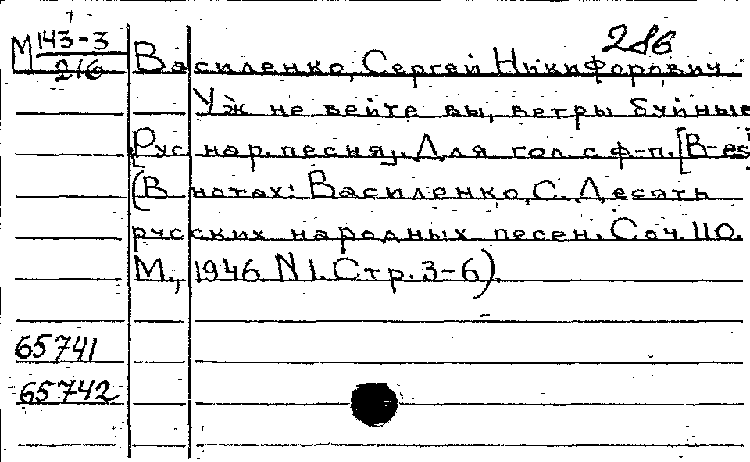 286
М 143-3
216
Василенко, Сергей Никифорович.
Уж не вейте вы, ветры буйные
[Рус. нар. песня]. Для гол. с ф-п. [B-es]
(В нотах: Василенко, С. Десять
русских народных песен. Соч. 110.
М., 1946. N 1. Стр. 3-6).
65741
65742